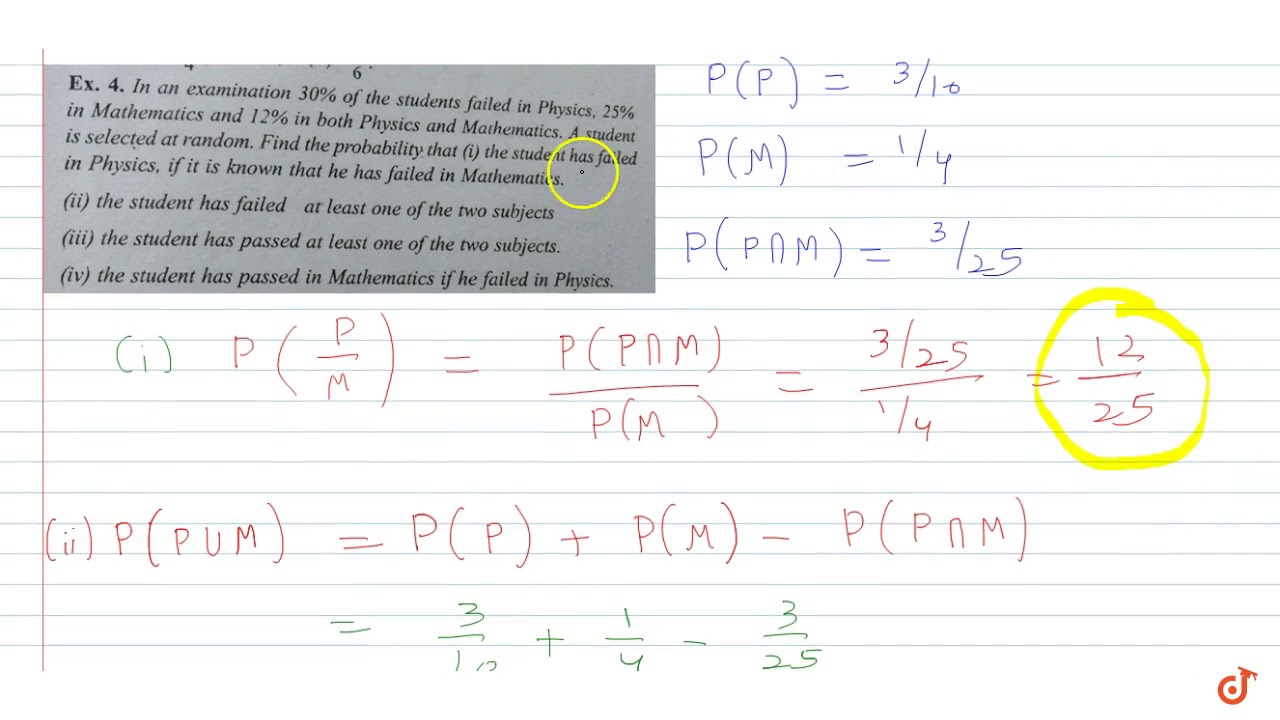 6 .
Ex. 4. In an examination 30% of the students failed in Physics, 25%
in Mathematics and 12% in both Physics and Mathematics. A student
is selected at random. Find the probability that (i) the student has failed
in Physics, if it is known that he has failed in Mathematics.
(ii) the student has failed at least one of the two subjects
(iii) the student has passed at least one of the two subjects.
(iv) the student has passed in Mathematics if he failed in Physics.
P(P) = 3/10
P(M) = 1/4
P(P∩M) = 3/25
(i) P(P/M) = P(P∩M)/P(M) = (3/25)/(1/4) = 12/25
(ii) P(P∪M) = P(P) + P(M) - P(P∩M)
= 3/10 + 1/4 - 3/25